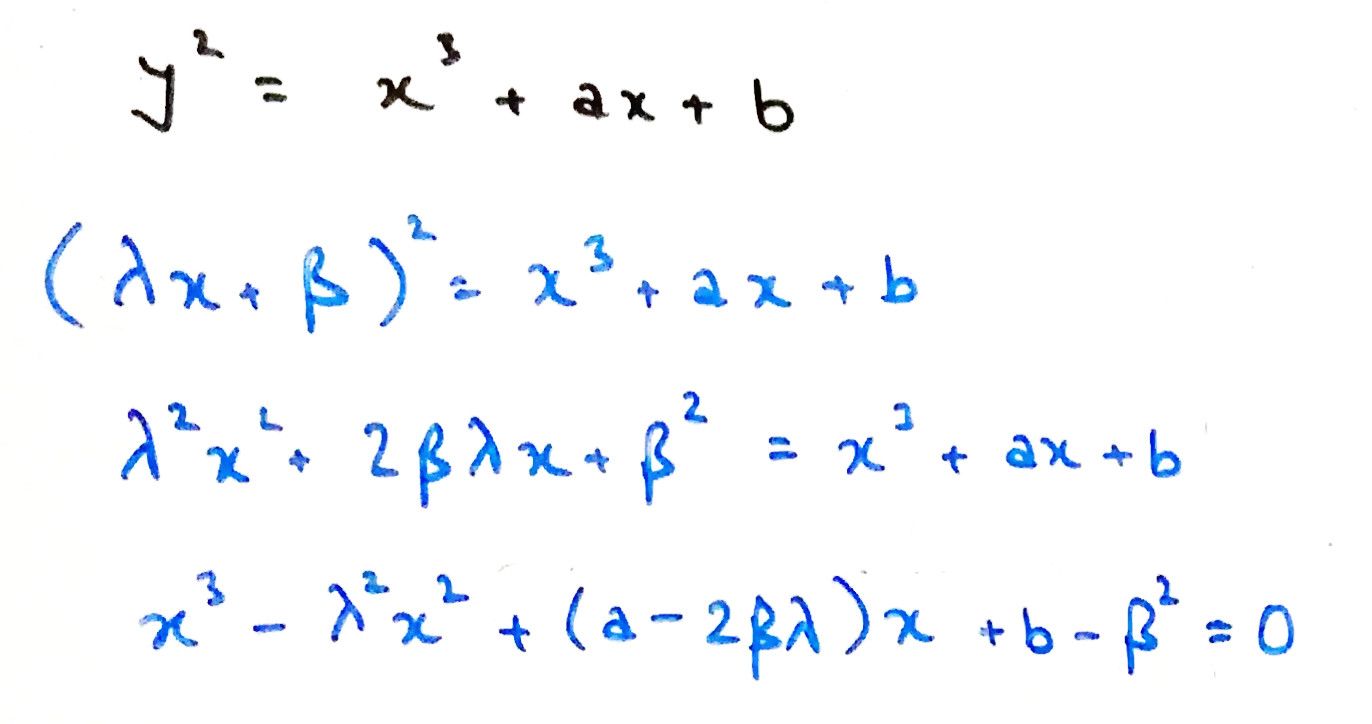 y² = x³ + ax + b
(λx + β)² = x³ + ax + b
λ²x² + 2βλx + β² = x³ + ax + b
x³ - λ²x² + (a - 2βλ)x + b - β² = 0